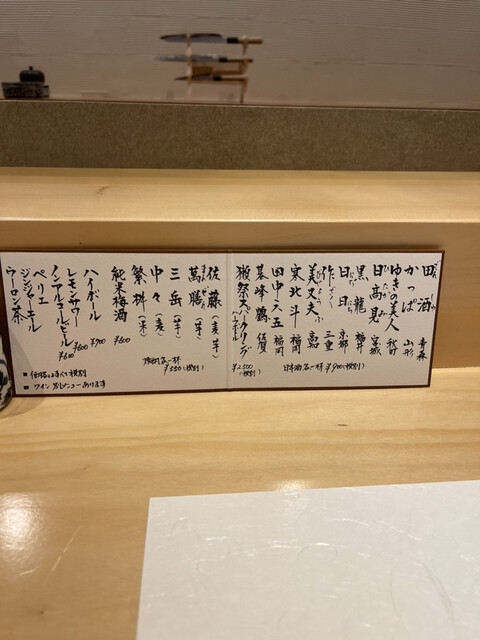 田酒 青森
かっぱ 山形
ゆきの美人 秋田
日高見 宮城
黒龍 福井
日日 京都
作 三重
美丈夫 高知
寒北斗 福岡
田中六五 福岡
基峰鶴 佐賀
獺祭スパークリング
ハーフボトル
¥2,500
(税別)
日本酒 各一杯 ¥900(税別)
佐藤(麦・芋)
萬膳(芋)
三岳(芋)
中々(麦)
繁桝(米)
焼酎 各一杯
¥550(税別)
純米梅酒 ¥600
ハイボール ¥700
レモンサワー ¥600
ノンアルコールビール ¥600
ペリエ
ジンジャーエール
ウーロン茶
■ 価格はすべて税別
■ ワイン 別メニューあります